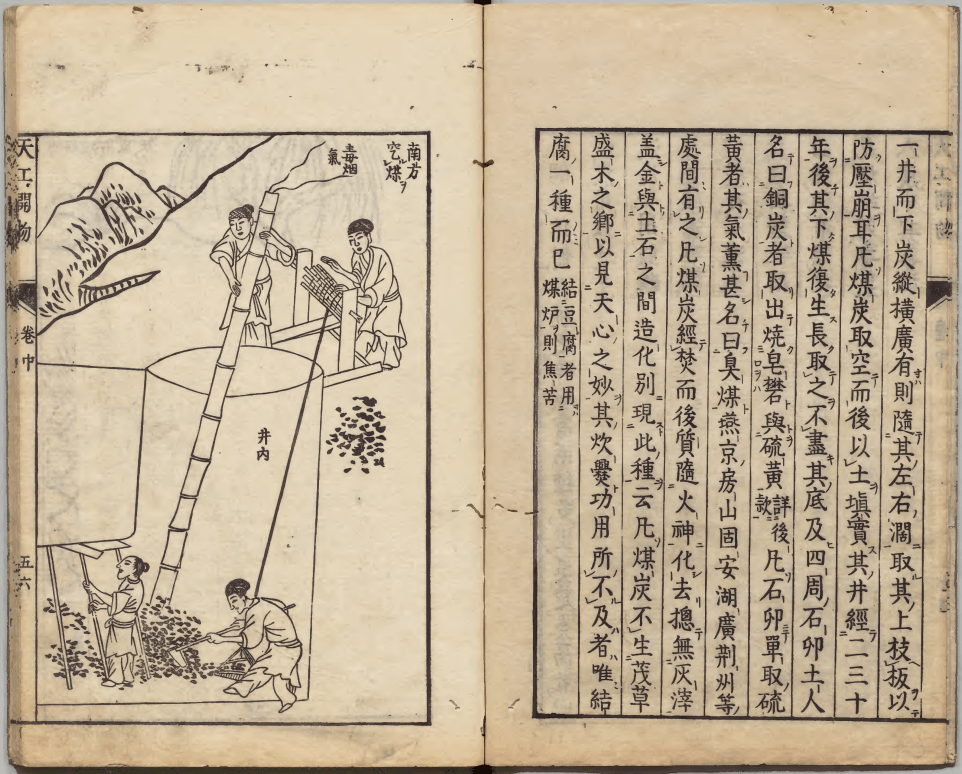 一井而下炭縱橫廣有則隨其左右濶取其上枝板以
防壓崩耳凡煤炭取空而後以土塡實其井經二三十
年後其下煤復生長取之不盡其底及四周石卵土人
名曰銅炭者取出燒皂礬與硫黃詳後款凡石卵單取硫
黃者其氣薰甚名曰臭煤燕京房山固安湖廣荆州等
處間有之凡煤炭經焚而後質隨火神化去摠無灰滓
盖金與土石之間造化別現此種云凡煤炭不生茂草
盛木之鄉以見天心之妙其炊爨功用所不及者唯結
腐一種而已結豆腐者用
煤炉則焦苦
南方
空煤
毒烟
氣
井内
天工開物
卷中
五六